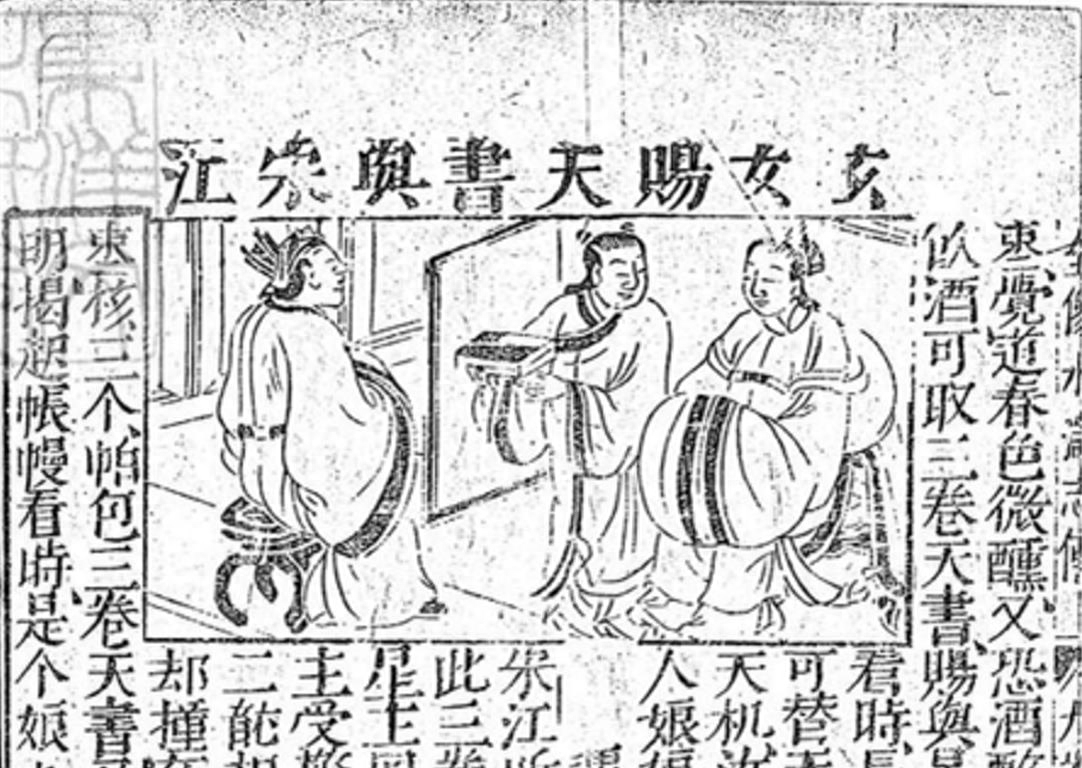 玄女賜天書與宋江
棗覺道春色微醺又恐酒
飲酒可取三卷天書賜與
看時
可替天
天机汝
人娘娘
宋江
此三卷
星主
主受
二能
却撞
棗核三个帕包三卷天書
明揭起帳幔看時是个娘